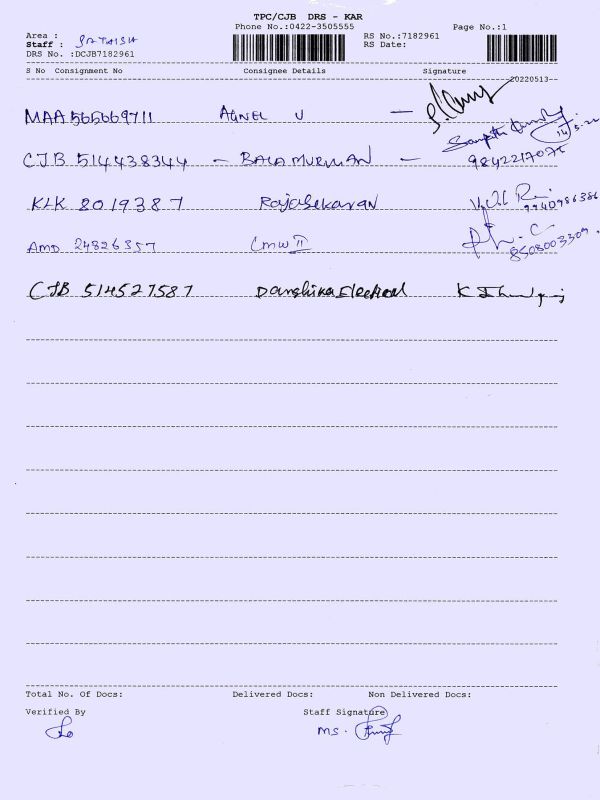 TPC/CJB DRS - KAR
Phone No.:0422-3505555 Page No.:1
Area :
Staff : SATHISH RS No.:7182961
DRS No. :DCJB7182961 RS Date:
S No Consignment No Consignee Details Signature
20220513
MAA 565669711 AGNEL V —
CJB 514438344 - BALA MURUGAN - 9842217075
KLK 8019387 Rajasekaran 9940986386
AMD 24826357 CMW II 8508003309
CJB 514527587 Danshika Electrical
Total No. Of Docs: Delivered Docs: Non Delivered Docs:
Verified By Staff Signature
MS.